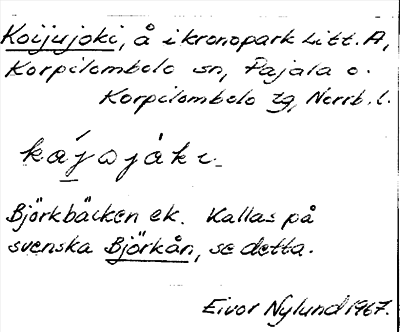 Koijujoki, å i kronopark Litt. A,
Korpilombolo sn, Pajala o.
Korpilombolo tg, Norrb. l.
Björkbäcken ek. Kallas på
svenska Björkån, se detta.
Eivor Nylund 1967.